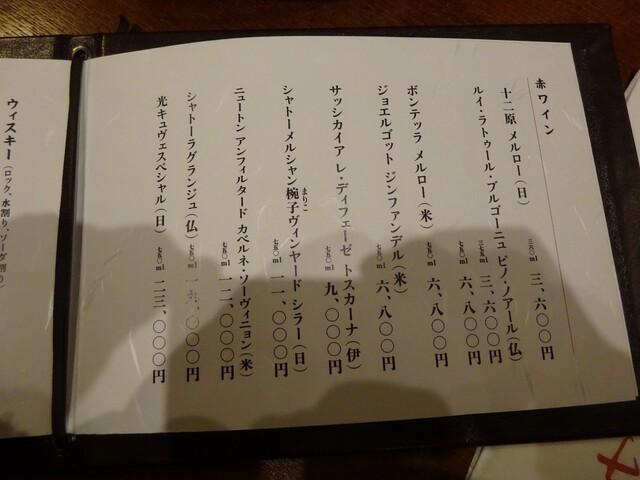 赤ワイン
十二原 メルロー（日） 三六〇ml 三、六〇〇円
ルイ・ラトゥール・ブルゴーニュ ピノ・ノアール（仏）
三七五ml 三、六〇〇円
七五〇ml 六、八〇〇円
ボンテッラ メルロー（米） 七五〇ml 六、八〇〇円
ジョエルゴット ジンファンデル（米） 七五〇ml 六、八〇〇円
サッシカイア レ・ディフェーゼ トスカーナ（伊） 七五〇ml 九、〇〇〇円
シャトーメルシャン椀子ヴィンヤード シラー（日） 七五〇ml 一一、〇〇〇円
まりこ
ニュートン アンフィルタード カベルネ・ソーヴィニョン（米） 七五〇ml 一二、〇〇〇円
シャトーラグランジュ（仏） 七五〇ml 一六、〇〇〇円
光キュヴェスペシャル（日） 七五〇ml 二三、〇〇〇円
ウィスキー（ロック、水割り、ソーダ割り）